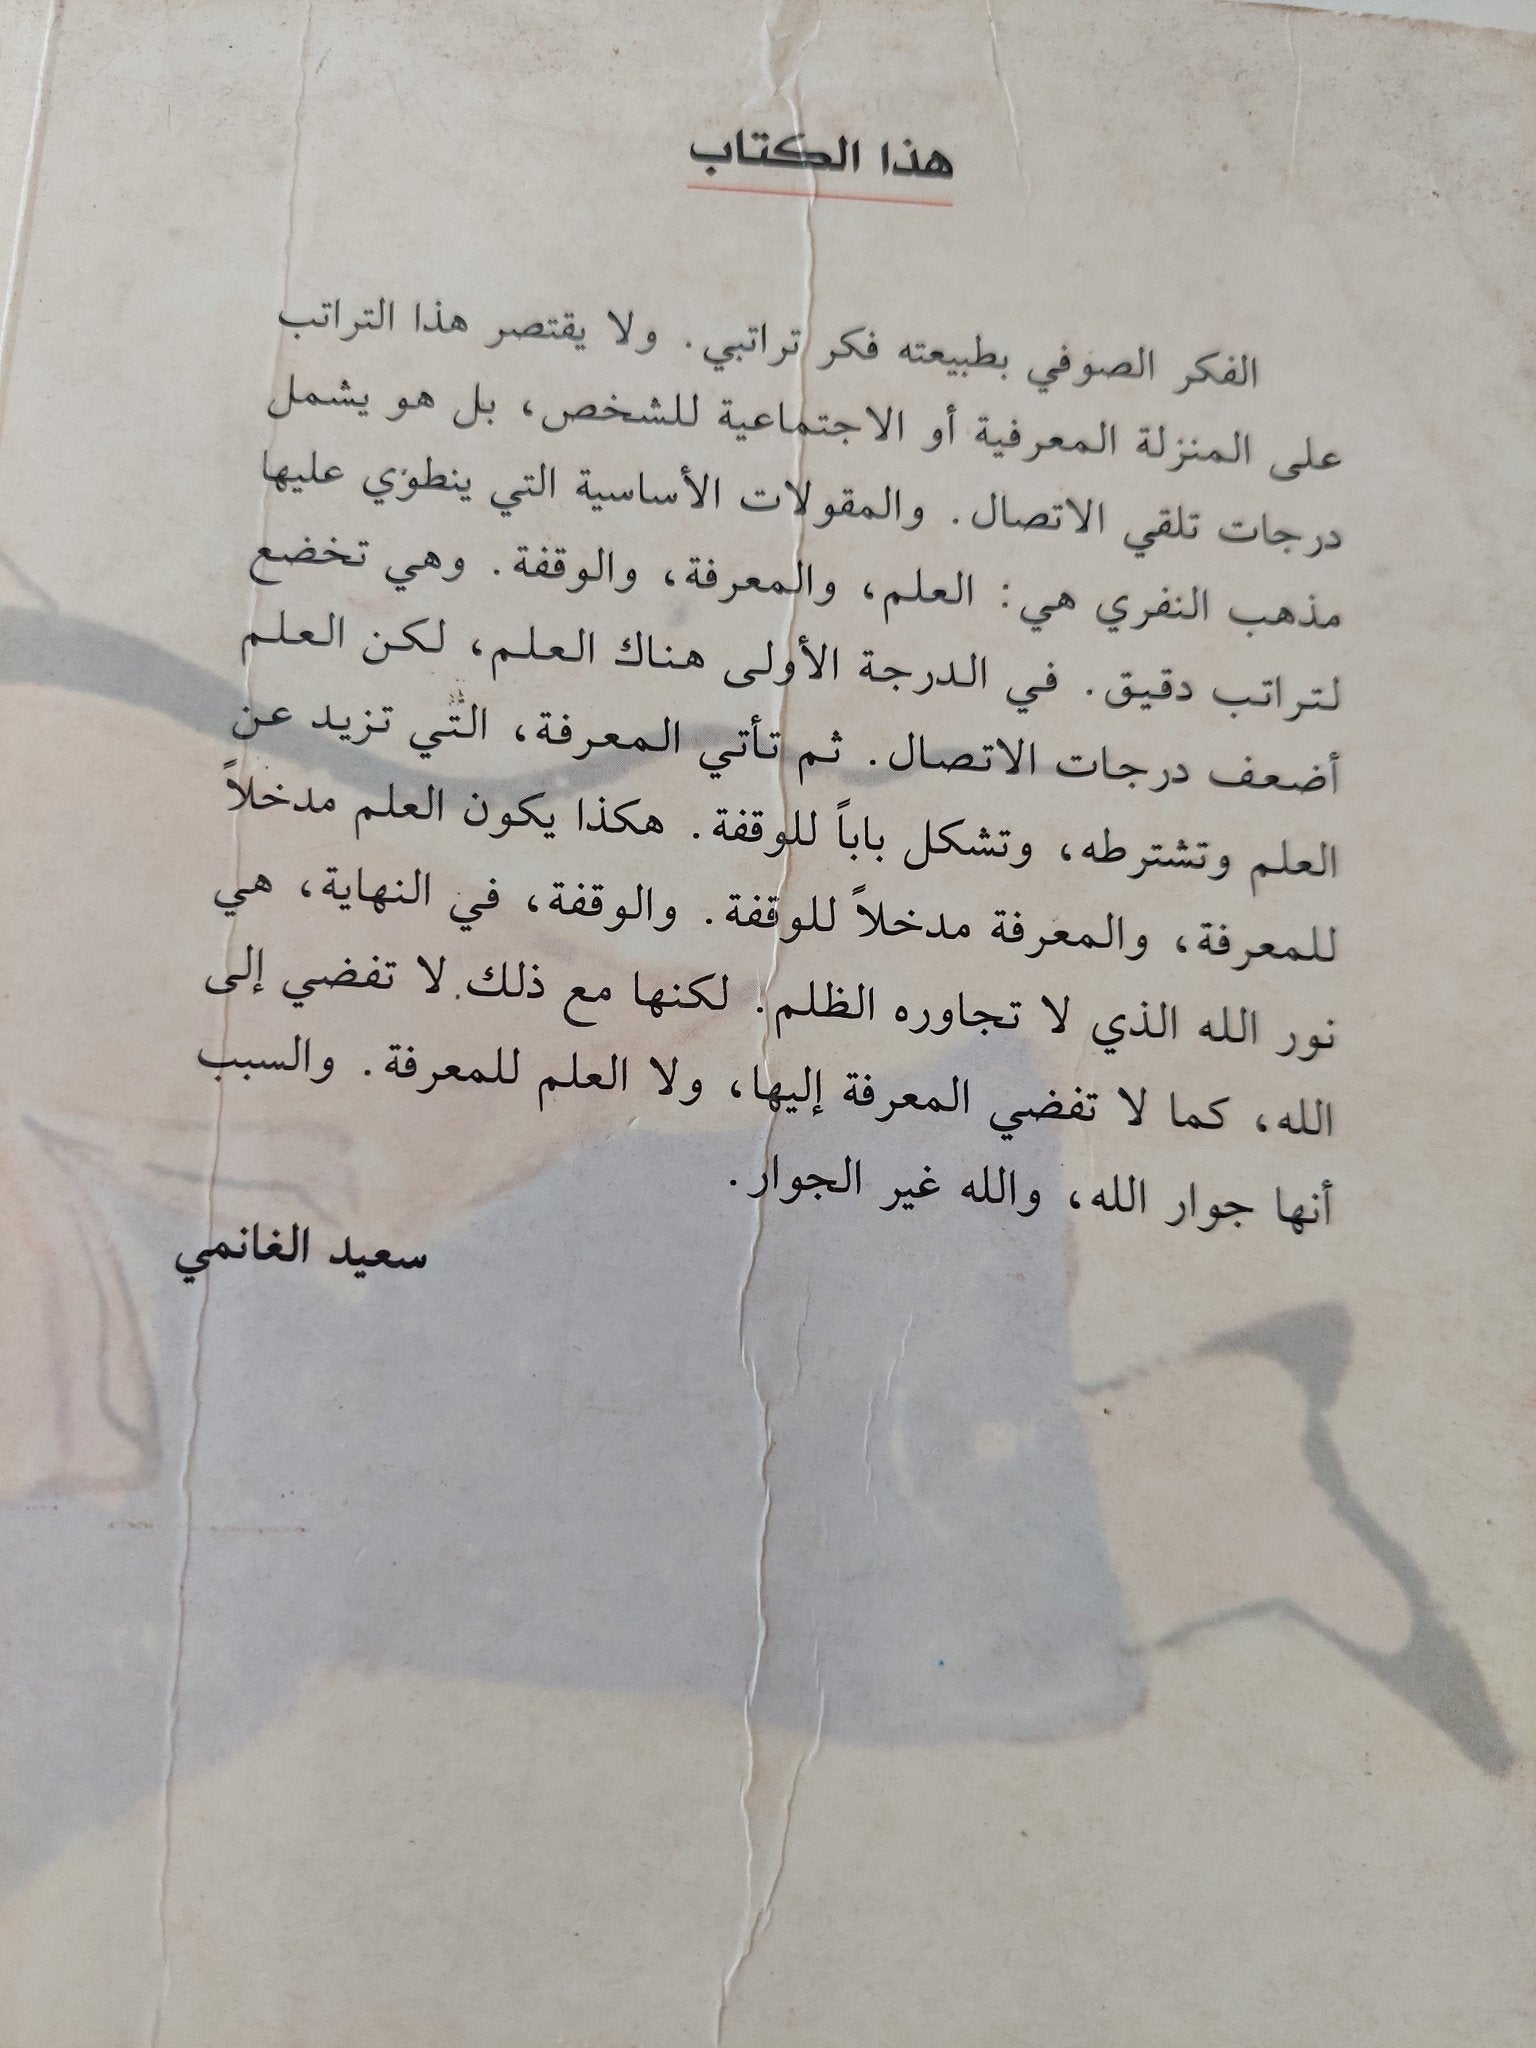 هذا الكتاب
الفكر الصوفي بطبيعته فكر تراتبي. ولا يقتصر هذا التراتب
على المنزلة المعرفية أو الاجتماعية للشخص، بل هو يشمل
درجات تلقي الاتصال. والمقولات الأساسية التي ينطوي عليها
مذهب النفري هي: العلم، والمعرفة، والوقفة. وهي تخضع
لتراتب دقيق. في الدرجة الأولى هناك العلم، لكن العلم
أضعف درجات الاتصال. ثم تأتي المعرفة، التي تزيد عن
العلم وتشترطه، وتشكل باباً للوقفة. هكذا يكون العلم مدخلاً
للمعرفة، والمعرفة مدخلاً للوقفة. والوقفة، في النهاية، هي
نور الله الذي لا تجاوره الظلم. لكنها مع ذلك لا تفضي إلى
الله، كما لا تفضي المعرفة إليها، ولا العلم للمعرفة. والسبب
أنها جوار الله، والله غير الجوار.
سعيد الغانمي